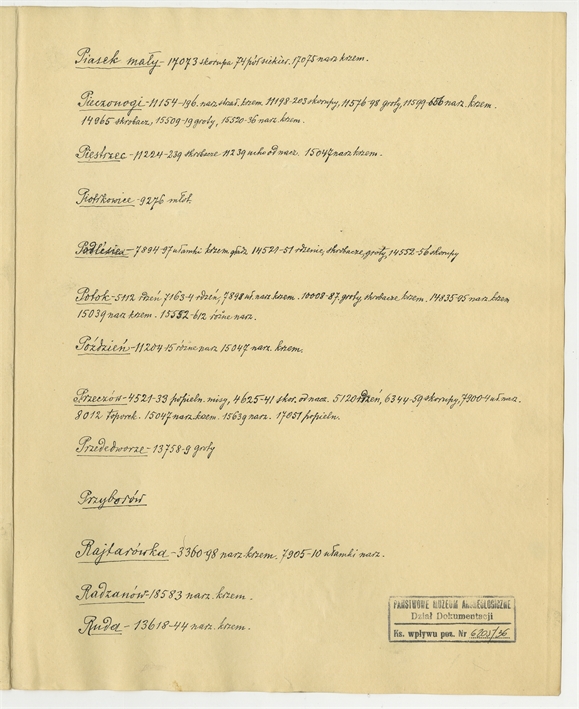 Piasek mały - 17073 skorupa 74 pół siekier. 17075 narz krzem.
Pieczonogi - 11154-196. narz. krzem. 11198-203 skorupy, 11576-98 groty, 11599-656 narz. krzem.
14965 skrobacz, 15509-19 groty, 15520-36 narz. krzem.
Piestrzec - 11224-239 skrobacze 11239 ucho od nacz. 15047 narz krzem.
Piotrkowice - 9276 młot.
Podlesice - 7894-97 ułamki krzem. 14521-51 rdzenie, skrobacze, groty, 14552-56 skorupy
Potok - 5112 rdzeń 7163-4 rdzeń, 7898 uł. narz krzem. 10008-87. groty, skrobacze krzem. 14835-95 narz. krzem
15039 narz krzem. 15552-612 różne narz.
Poździeń - 11204-15 różne narz 15047 narz. krzem.
Przeczów - 4521-33 popieln. misy, 4625-41 skor. od nacz. 5120 rdzeń, 6344-59 skorupy, 7900-4 uł. narz.
8012 toporek. 15047 narz. krzem. 15639 narz. 17051 popieln.
Przededworze - 13758-9 groty
Przyborów
Rajtarówka - 3360-98 narz. krzem. 7905-10 ułamki narz.
Radzanów - 18583 narz. krzem.
Ruda - 13618-44 narz. krzem.
PAŃSTWOWE MUZEUM ARCHEOLOGICZNE
Dział Dokumentacji
Ks. wpływu poz. Nr